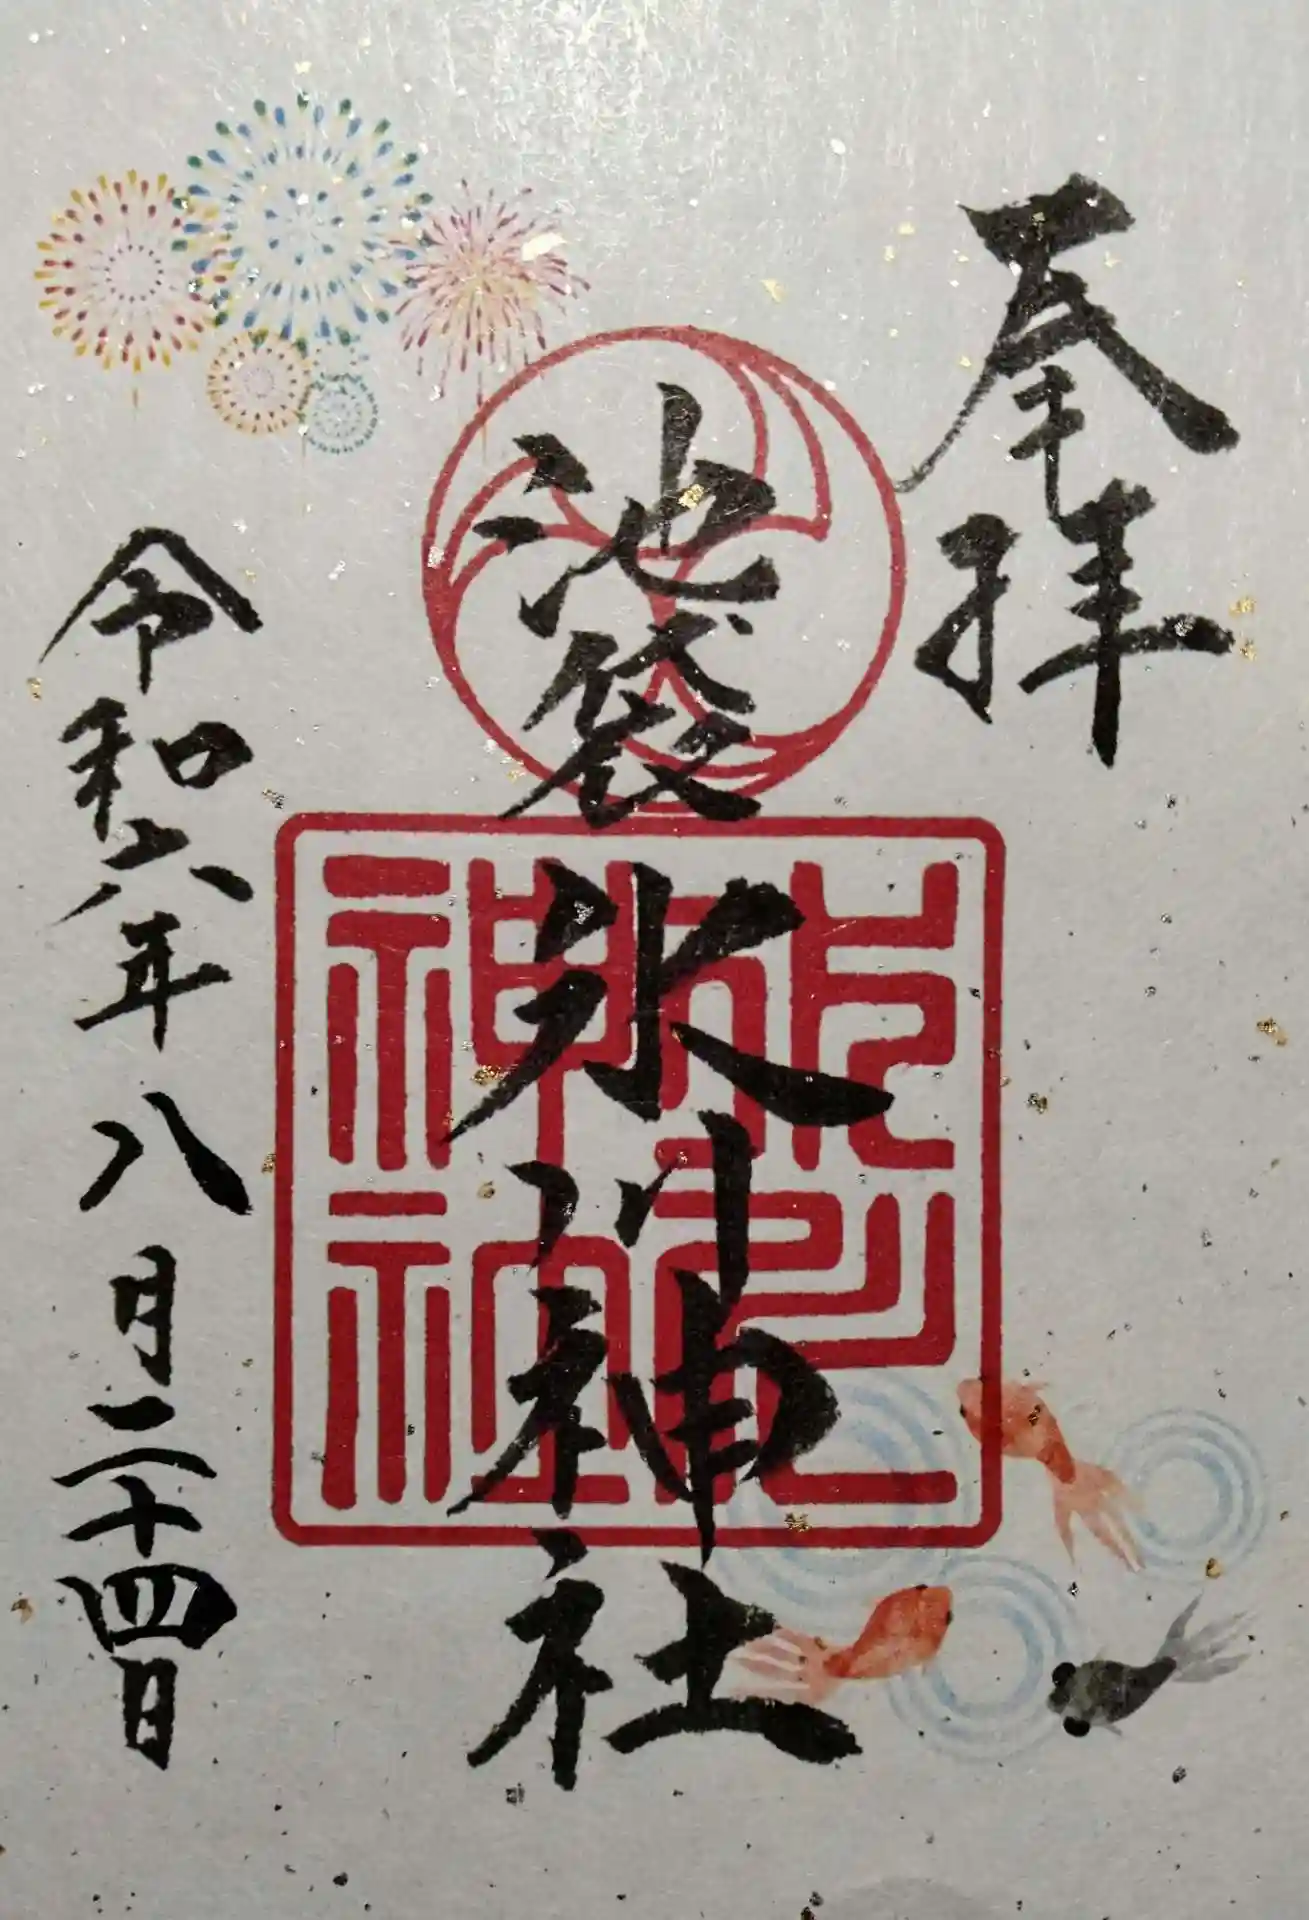 奉拝
池袋氷川神社
氷川
神社
令和六年八月二十四日